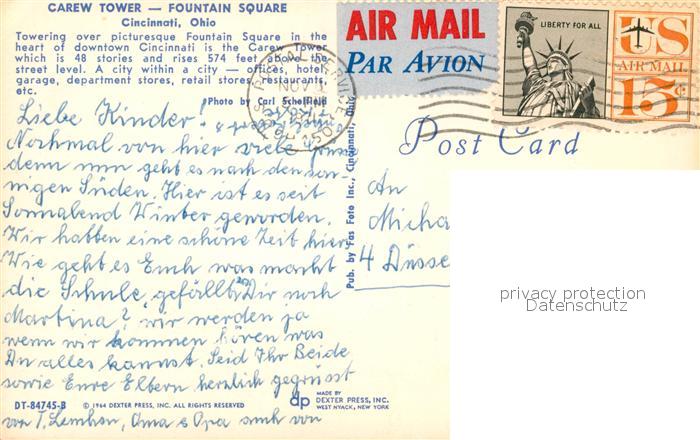 CAREW TOWER — FOUNTAIN SQUARE
Cincinnati, Ohio
Towering over picturesque Fountain Square in the
heart of downtown Cincinnati is the Carew Tower
which is 48 stories and rises 574 feet above the
street level. A city within a city — offices, hotel,
garage, department stores, retail stores, restaurants,
etc.
Photo by Carl Schofield
Liebe Kinder!
Nochmal von hier viele Grüsse
denn nun geht es nach den son-
nigen Süden. Hier ist es seit
Sonnabend Winter geworden.
Wir haben eine schöne Zeit hier.
Wie geht es Euch was macht
die Schule, gefällts Dir noch
Martina? wir werden ja
wenn wir kommen hören was
Du alles kannst. Seid Ihr Beide
sowie Eure Eltern herzlich gegrüsst
von T. Lenchen, Oma u Opa auch von
DT-84745-B
© 1964 DEXTER PRESS, INC. ALL RIGHTS RESERVED
dp
MADE BY
DEXTER PRESS, INC.
WEST NYACK, NEW YORK
Pub. by Fas Foto Inc., Cincinnati, Ohio
AIR MAIL
PAR AVION
LIBERTY FOR ALL
US
AIR MAIL
15¢
NOV
Post Card
An
Micha
4 Düsse
privacy protection
Datenschutz